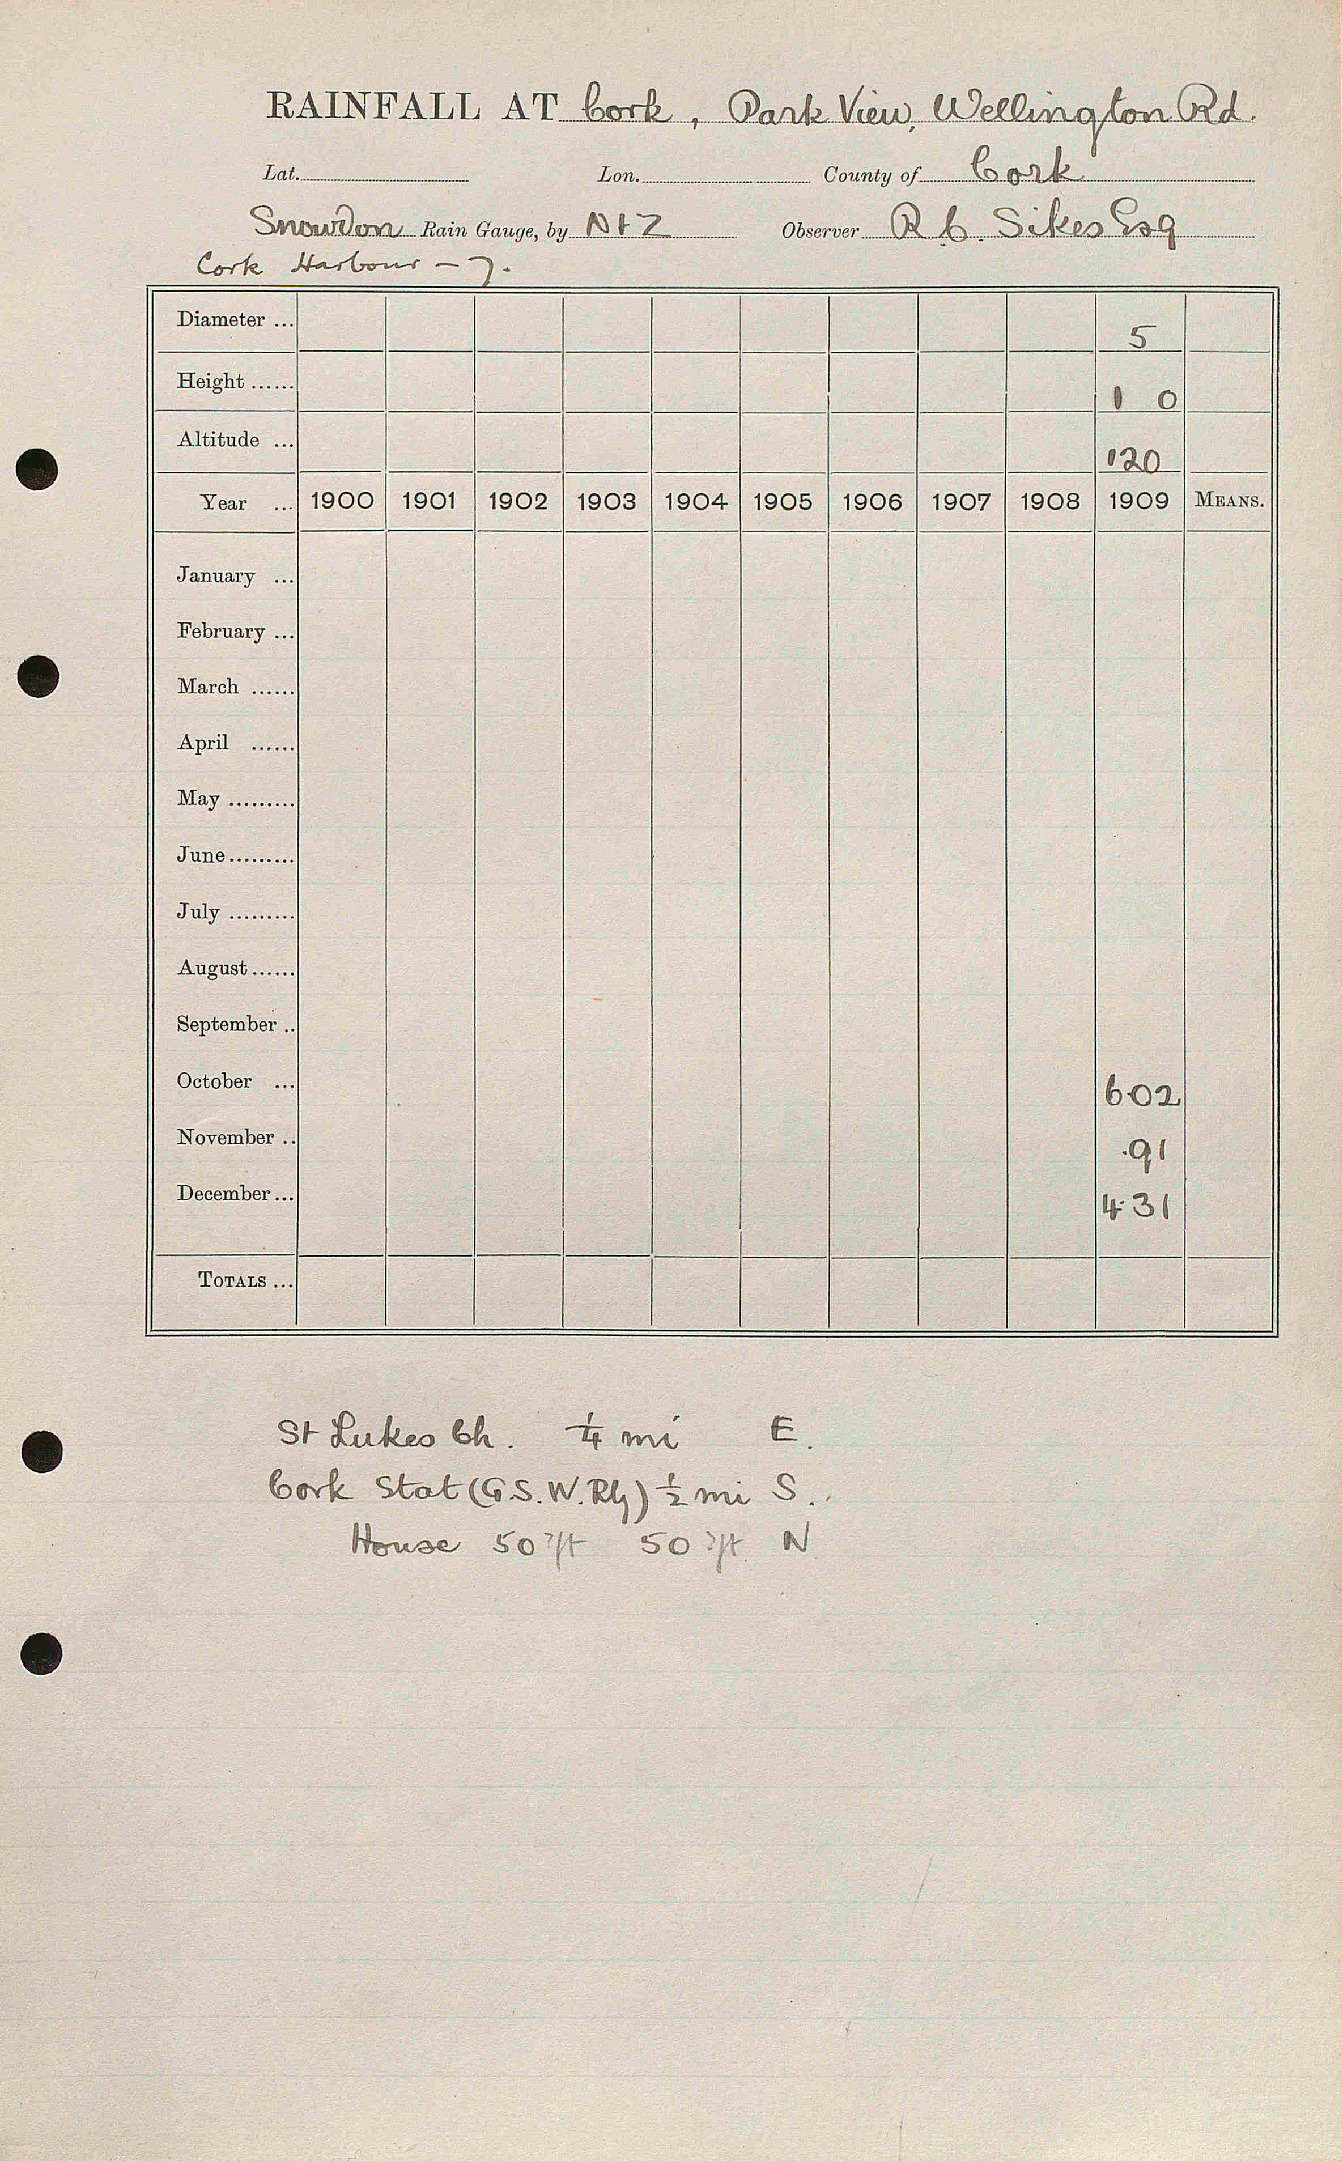 RAINFALL AT Cork, Park View, Wellington Rd.
Lat. Lon. County of Cork
Snowdon Rain Gauge, by N & Z Observer R. C. Sikes Esq
Cork Harbour - 7.
Diameter ... 5
Height ...... 1 0
Altitude ... 120
Year ... 1900 1901 1902 1903 1904 1905 1906 1907 1908 1909 MEANS.
January ...
February ...
March ......
April ......
May .........
June.........
July .........
August......
September ..
October ... 6.02
November .. .91
December... 4.31
TOTALS ...
St Lukes Ch. 1/4 mi E.
Cork Stat (G.S.W.Rly) 1/2 mi S.
House 50 ?ft 50 ?ft N